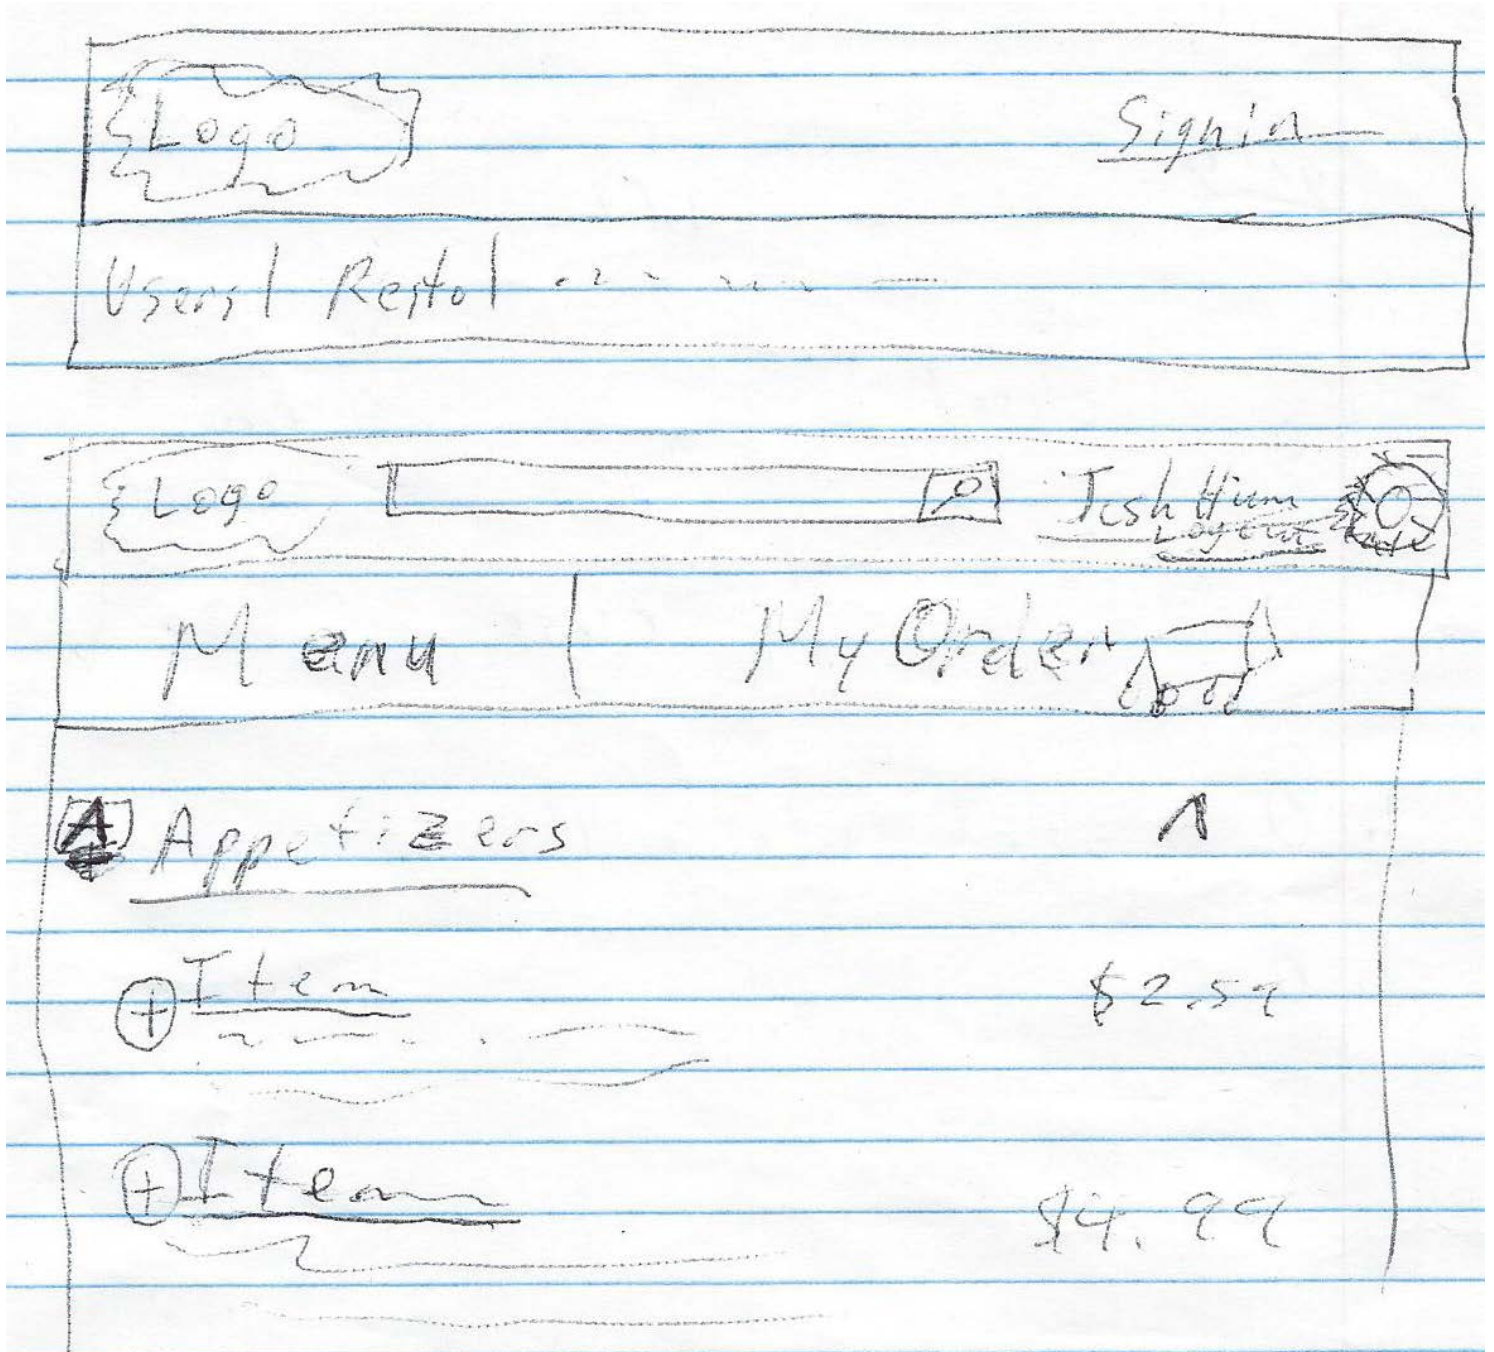 Logo Signin
Users | Resto |
Logo Josh Hum
Logout
Menu | My Order
Appetizers
Item $2.59
Item $4.99